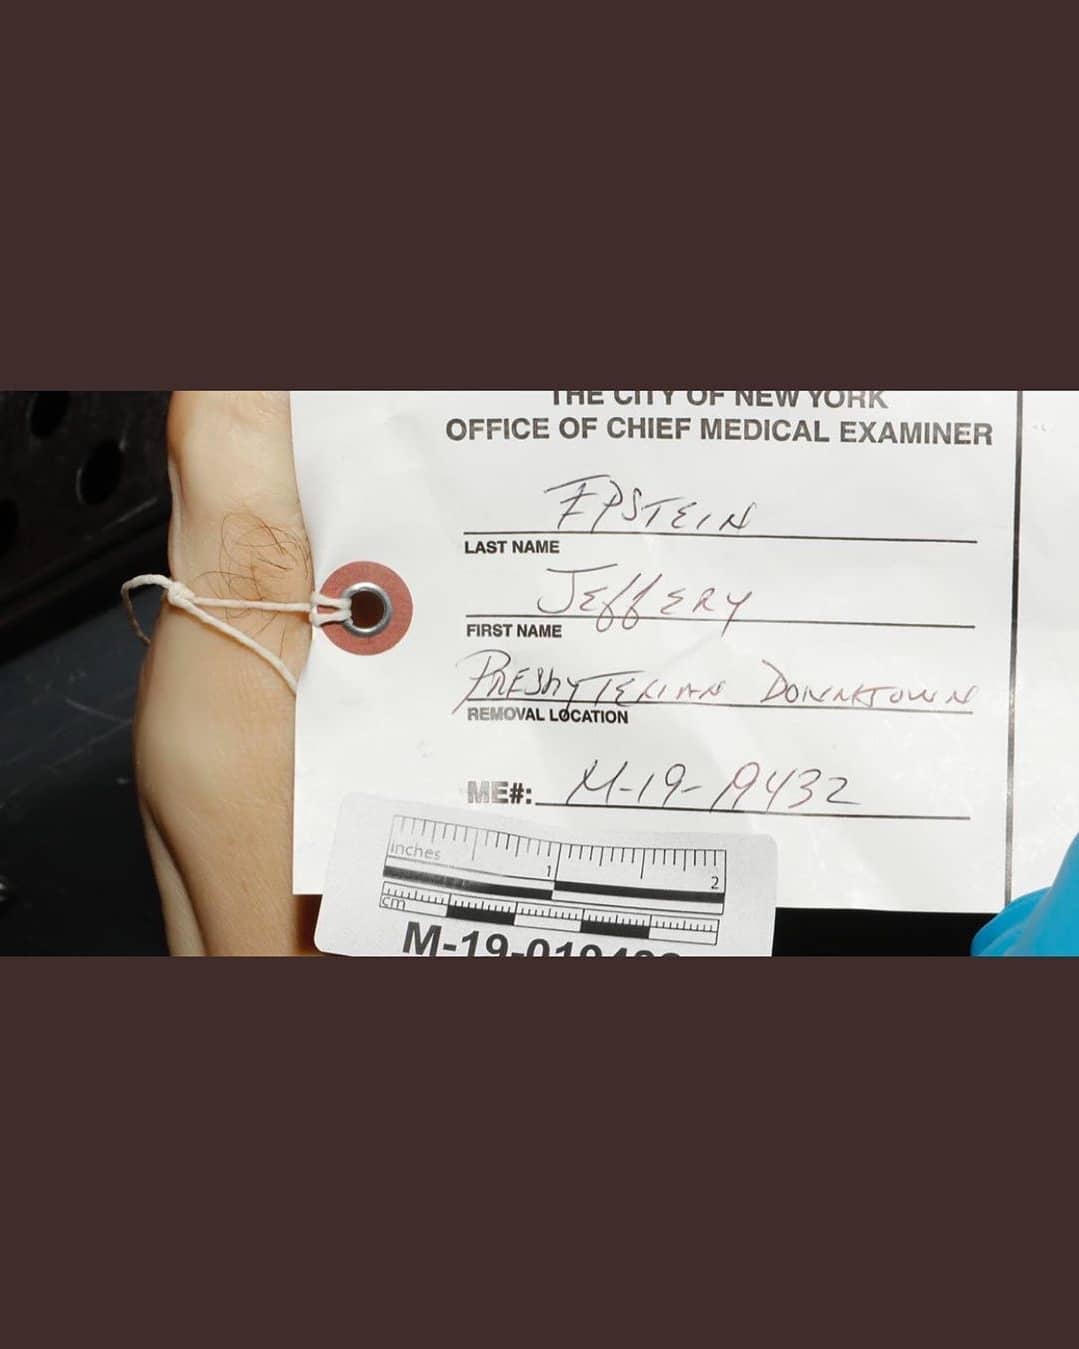 THE CITY OF NEW YORK
OFFICE OF CHIEF MEDICAL EXAMINER
EPSTEIN
LAST NAME
JEffERY
FIRST NAME
PRESbyTERIAN DOWNTOWN
REMOVAL LOCATION
ME#: M-19-19432
inches 1 2
cm